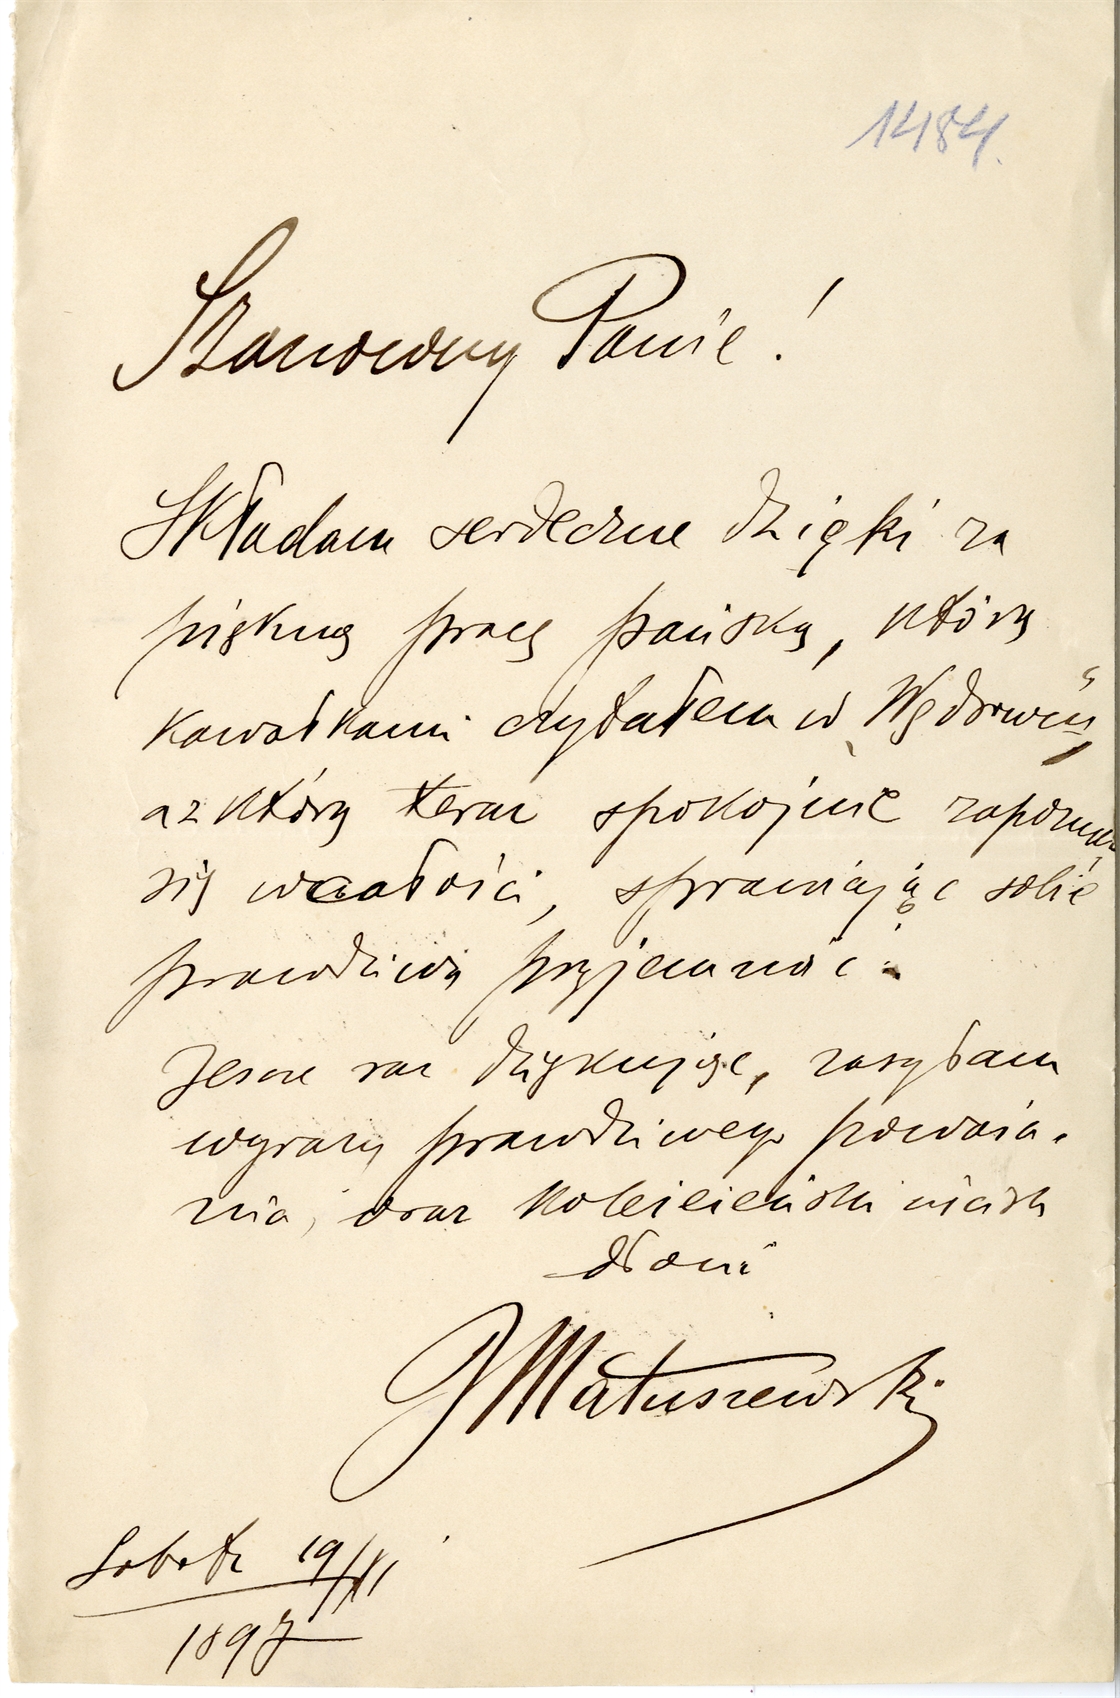 1484.
Szanowny Panie!
Składam serdeczne dzięki za
piękną pracę pańską, którą
kawałkami czytałem w Wędrowcu,
a z którą teraz spokojnie zapoznam
się w całości, sprawiając sobie
prawdziwą przyjemność.
Jeszcze raz dziękując, zasyłam
wyrazy prawdziwego poważa-
nia, oraz koleżeński uścisk
dłoni
I Matuszewski
Sobota 19/XI
1897